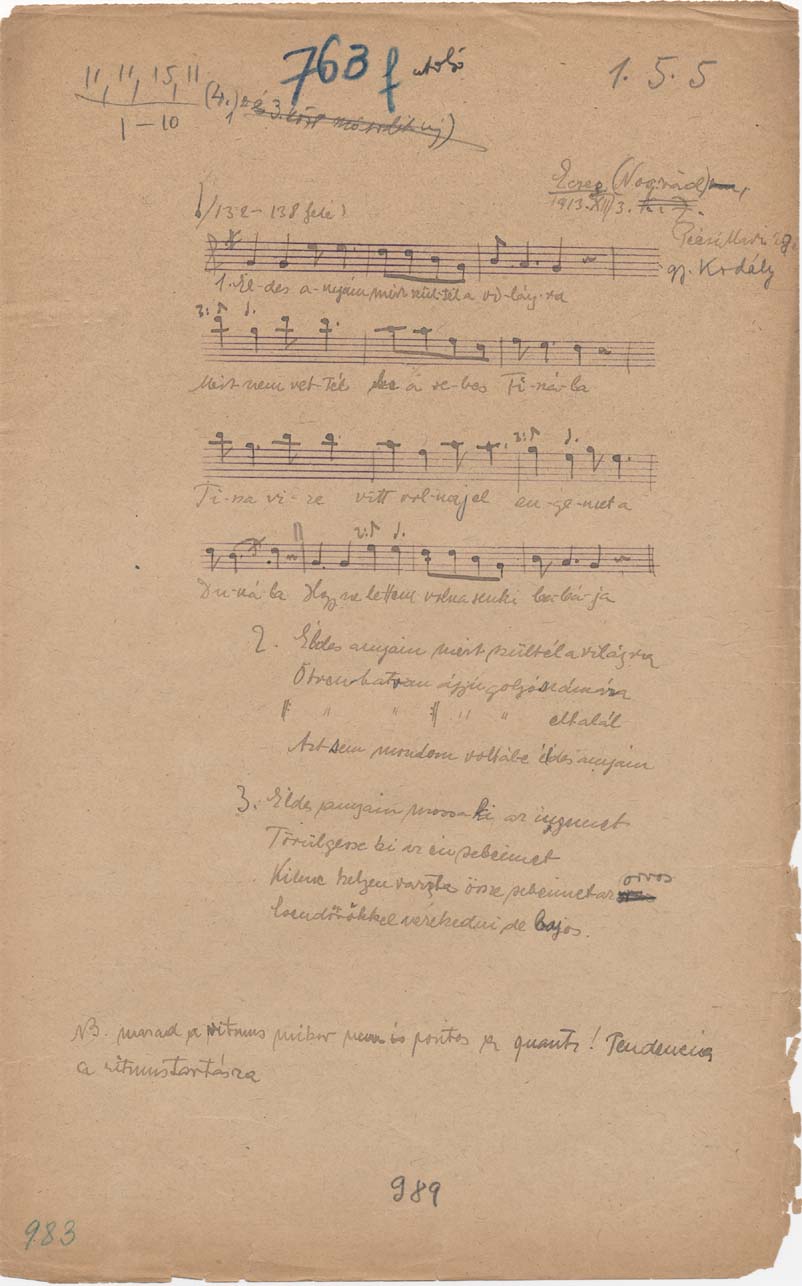 763 f utolsó
1. 5. 5
11, 11, 15, 11
1-10
(4.)
(132-138 felé)
(Nográd)
1913. XII/3.
gy. Kodály
1. Él-des a-nyám mért szül-tél a vi-lág-ra
3:
Mért nem vet-tél be a se-bes Ti-szá-ba
3:
Ti-sza vi-ze vitt vol-na jel en-ge-met a
2:
Du-ná-ba Hogy ne lettem volna senki ba-bá-ja
2. Éldes anyám mért szültél a világra
Ötven hatvan ágyúgolyó számára
" " " " " eltalál
Azt sem mondom voltábé éldes anyám
3. Éldes anyám mossa ki az ingemet
Törülgesse ki az én sebeimet
Kilenc helyen varrta össze sebeimet az orvos
Csendőrökkel verekedni de bajos.
NB. marad a ritmus mikor nem is pontos a quant! Tendencia
a ritmustartásra
989
983